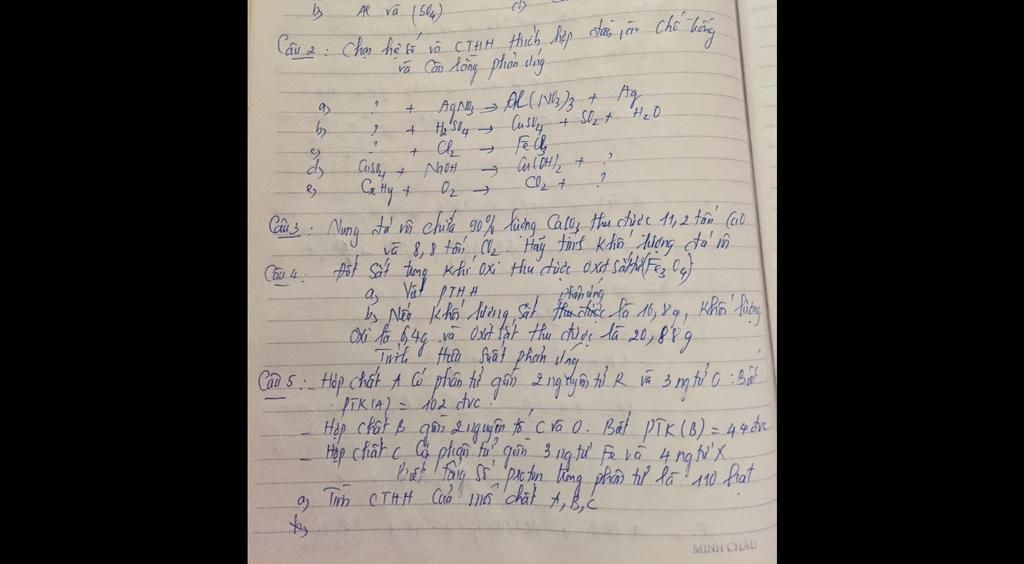 b) Al và (SO4) d)
Câu 2 : Chọn hệ số và CTHH thích hợp đặt vào chỗ trống
và cân bằng phản ứng
a) ? + AgNO3 → Al(NO3)3 + Ag
b) ? + H2SO4 → CuSO4 + SO2 + H2O
c) ? + Cl2 → FeCl3
d) CuSO4 + NaOH → Cu(OH)2 + ?
e) CxHy + O2 → CO2 + ?
Câu 3 : Nung đá vôi chứa 90% lượng CaCO3 thu được 11,2 tấn CaO
và 8,8 tấn CO2. Hãy tính khối lượng đá vôi
Câu 4 : Đốt sắt trong khí oxi thu được oxit sắt từ (Fe3O4)
a) Viết PTHH
phản ứng
b) Nếu khối lượng sắt thu được là 16,8g, khối lượng
oxi là 6,4g và oxit sắt thu được là 20,88g
Tính hiệu suất phản ứng
Câu 5 : Hợp chất A có phân tử gồm 2 nguyên tử R và 3 ng tử O. Biết
PTK(A) = 102 đvc.
- Hợp chất B gồm 2 nguyên tố C và O. Biết PTK(B) = 44 đvc
- Hợp chất C có phân tử gồm 3 ng tử Fe và 4 ng tử X
biết tổng số proton trong phân tử là 110 hạt
a) Tìm CTHH của mỗi chất A, B, C
b)
MINH CHÂU